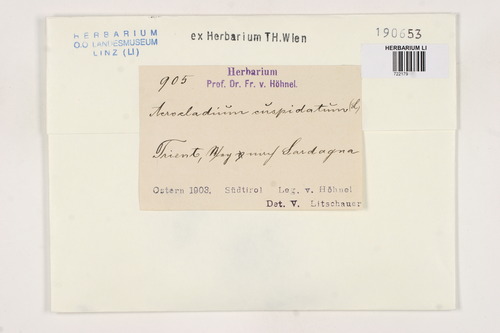 HERBARIUM
O.Ö LANDESMUSEUM
LINZ (LI)
ex Herbarium TH.Wien
190653
HERBARIUM LI
905
Herbarium
Prof. Dr. Fr. v. Höhnel.
Acrocladium cuspidatum (L)
Trient, Weg nach Sardagna
Ostern 1903, Südtirol Leg. v. Höhnel
Det. V. Litschauer